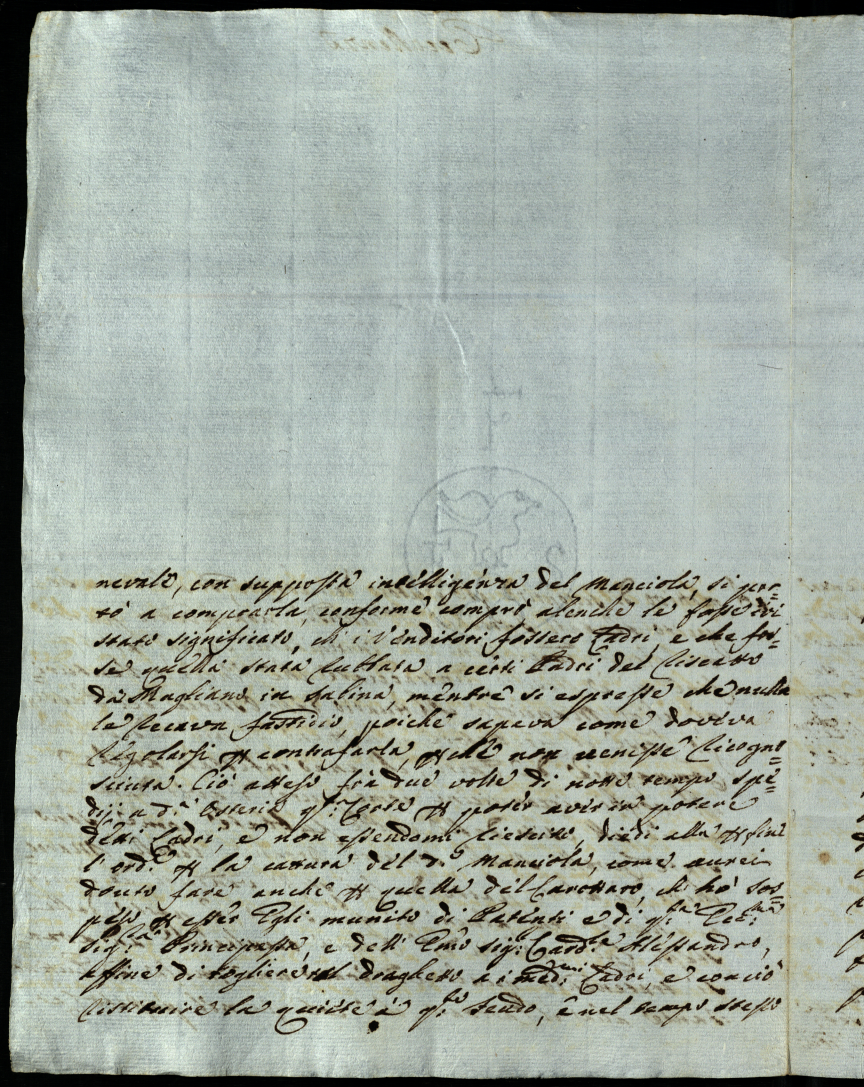 nevale, con supposta intelligenza del Manciola, si por=
tò a comprarla, conforme comprò alenche le fosse ivi
stato significato, che i Venditori fossero Ladri, e che fos=
se quella stata rubbata a certi Padri del Riscatto
da Magliano in Sabina, mentre si espresse che nulla
le recava fastidio, poiche sapeva come doveva
regolarsi p contrafarla, pche non venisse ricogno=
sciuta. Ciò atteso frà due volte di notte tempo spe=
dij a d.ª Osteria q.ª Corte p poter avere in potere
detti Ladri, e non essendomi riescito, diedi alla p fine
l'ord.e p la cattura del d.º Manciola, come aurei
douto fare anche p quella del Carottaro, ch'hò sos=
peso p esser Egli munito di Patenti e di q.ta Ecc.ma
Sig.ra Principessa, e dell'Emo Sig.r Card.le Alessandro,
affine di togliere il draghetto a i med.mi Ladri, e con ciò
restituire la quiete à q.to Feudo, e nel tempo stesso